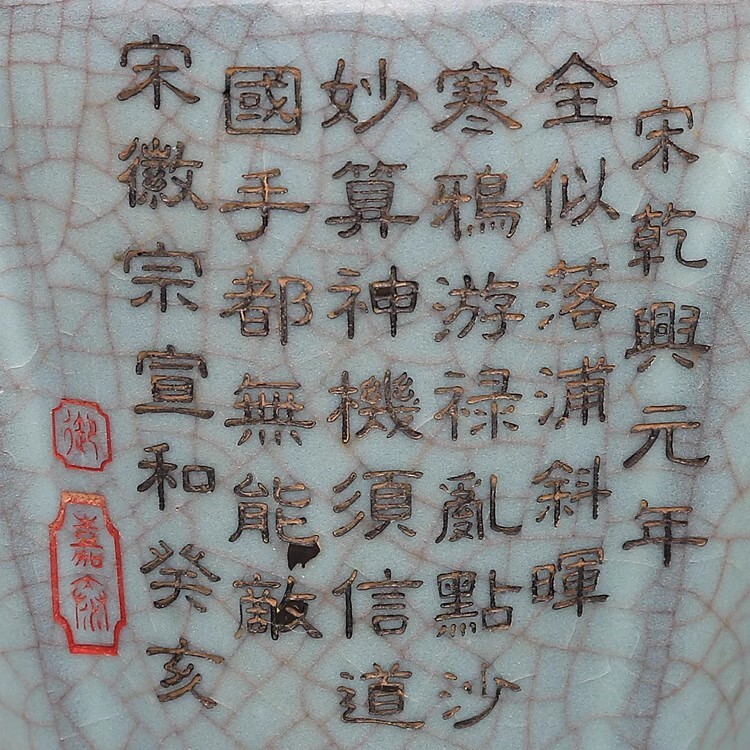 宋乾興元年
全似落浦斜暉
寒鴉游禄亂點沙
妙算神機須信道
國手都無能敵
宋徽宗宣和癸亥
御